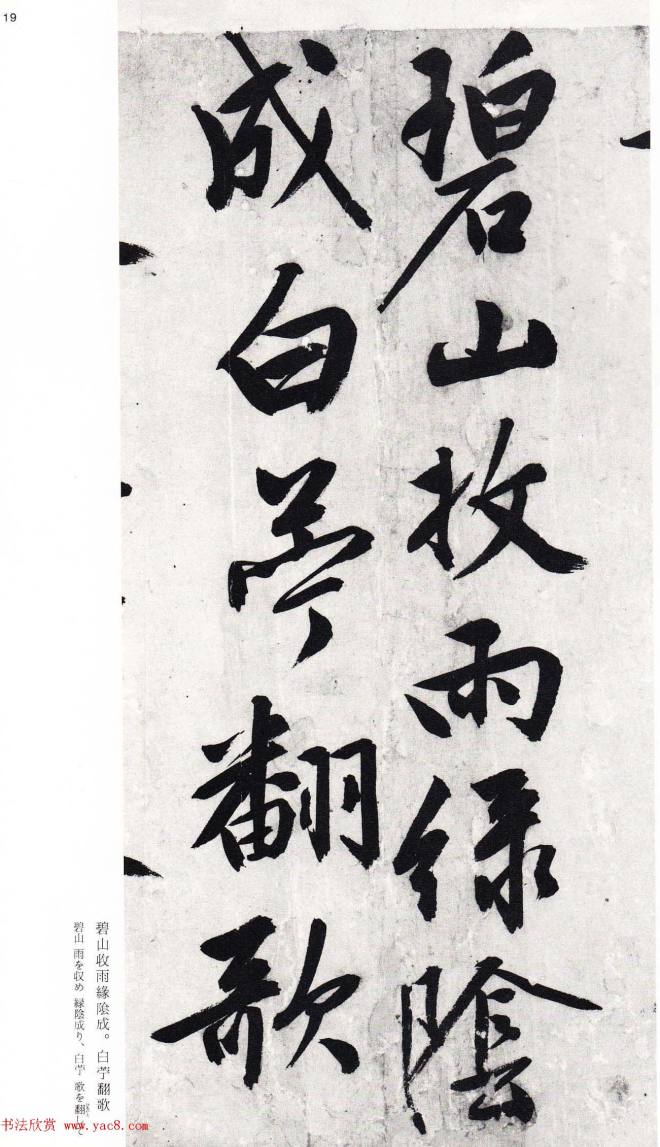 19
碧山收雨綠陰
成白苧翻歌
碧山收雨緣陰成。白苧翻歌
碧山 雨を収め 緑陰成り、白苧 歌を翻して
书法欣赏 www.yac8.com